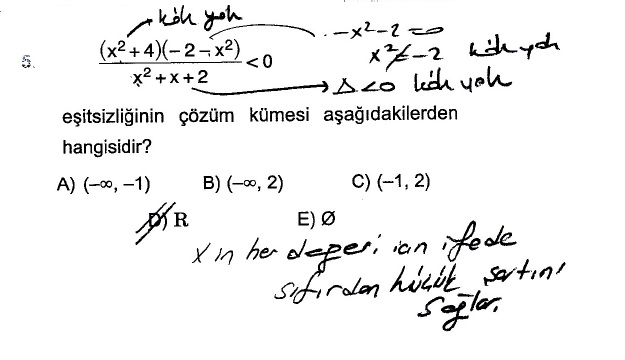 kök yok
5. (x²+4)(-2-x²) / x²+x+2 < 0
-x²-2=0
x²≠-2 kök yok
Δ<0 kök yok
eşitsizliğinin çözüm kümesi aşağıdakilerden
hangisidir?
A) (-∞, -1) B) (-∞, 2) C) (-1, 2)
D) R E) Ø
x in her değeri için ifade
sıfırdan küçük şartını
sağlar.